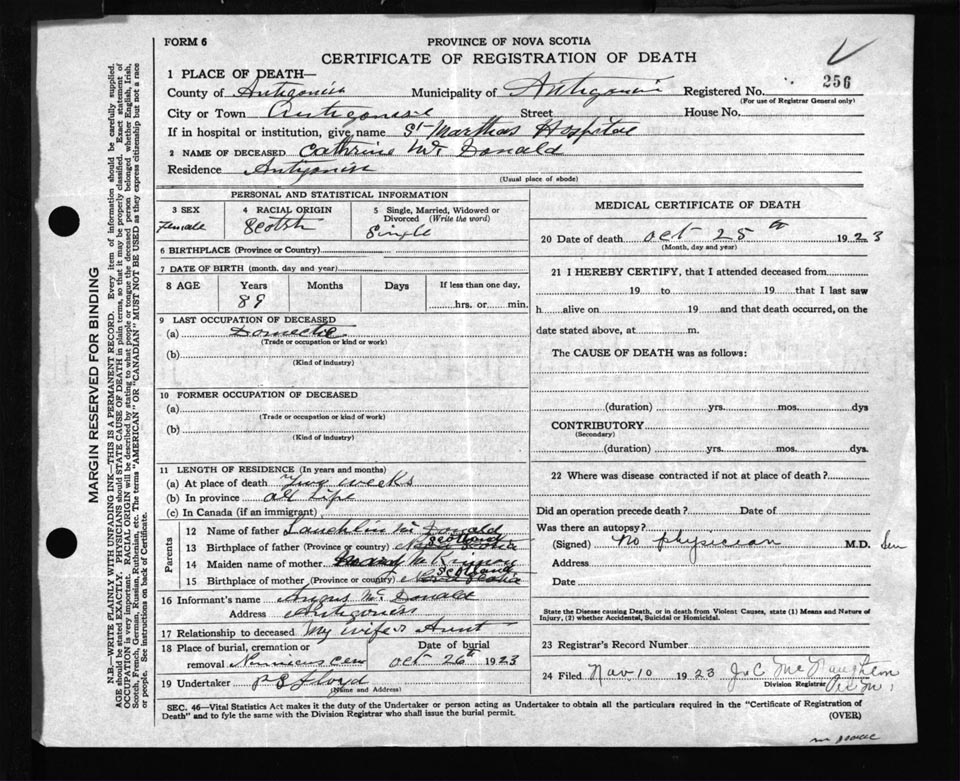 FORM 6
PROVINCE OF NOVA SCOTIA
CERTIFICATE OF REGISTRATION OF DEATH
256
1 PLACE OF DEATH—
County of Antigonish Municipality of Antigonish Registered No.
(For use of Registrar General only)
City or Town Antigonish Street House No.
If in hospital or institution, give name St Marthas Hospital
2 NAME OF DECEASED Cathrine Mc Donald
Residence Antigonish
(Usual place of abode)
PERSONAL AND STATISTICAL INFORMATION
3 SEX 4 RACIAL ORIGIN 5 Single, Married, Widowed or Divorced (Write the word)
Female Scotsh Single
6 BIRTHPLACE (Province or Country)
7 DATE OF BIRTH (month, day and year)
8 AGE Years Months Days If less than one day,
89 hrs. or min.
9 LAST OCCUPATION OF DECEASED
(a) Domestic
(Trade or occupation or kind or work)
(b)
(Kind of industry)
10 FORMER OCCUPATION OF DECEASED
(a)
(Trade or occupation or kind of work)
(b)
(Kind of industry)
11 LENGTH OF RESIDENCE (In years and months)
(a) At place of death Two weeks
(b) In province all Life
(c) In Canada (if an immigrant)
Parents
12 Name of father Lauchlin Mc Donald
13 Birthplace of father (Province or country) Nova Scotia Scotland
14 Maiden name of mother Mc Kinnon
15 Birthplace of mother (Province or country) Nova Scotia Scotland
16 Informant's name Angus Mc Donald
Address Antigonish
17 Relationship to deceased My wifes Aunt
18 Place of burial, cremation or removal Date of burial
Oct 26th 1923
19 Undertaker Floyd
(Name and Address)
MEDICAL CERTIFICATE OF DEATH
20 Date of death Oct 25th 1923
(Month, day and year)
21 I HEREBY CERTIFY, that I attended deceased from
19 to 19 that I last saw
h alive on 19 and that death occurred, on the
date stated above, at m.
The CAUSE OF DEATH was as follows:
(duration) yrs. mos. dys
CONTRIBUTORY
(Secondary)
(duration) yrs. mos. dys.
22 Where was disease contracted if not at place of death?
Did an operation precede death? Date of
Was there an autopsy?
(Signed) No physician M.D.
Address
Date
State the Disease causing Death, or in death from Violent Causes, state (1) Means and Nature of
Injury, (2) whether Accidental, Suicidal or Homicidal.
23 Registrar's Record Number
24 Filed Nov 10 1923 J. C. McNaughton
Division Registrar
SEC. 46—Vital Statistics Act makes it the duty of the Undertaker or person acting as Undertaker to obtain all the particulars required in the "Certificate of Registration of
Death" and to fyle the same with the Division Registrar who shall issue the burial permit.
(OVER)
MARGIN RESERVED FOR BINDING
N.B.—WRITE PLAINLY WITH UNFADING INK—THIS IS A PERMANENT RECORD. Every item of information should be carefully supplied.
AGE should be stated EXACTLY. PHYSICIANS should STATE CAUSE OF DEATH in plain terms, so that it may be properly classified. Exact statement of
OCCUPATION is very important. RACIAL ORIGIN will be described by stating to what people or tongue the deceased person belonged whether English, Irish,
Scotch, French, German, Russian, Ruthenian, etc. The terms "AMERICAN" OR "CANADIAN" MUST NOT BE USED as they express citizenship but not a race
or people. See instructions on back of Certificate.